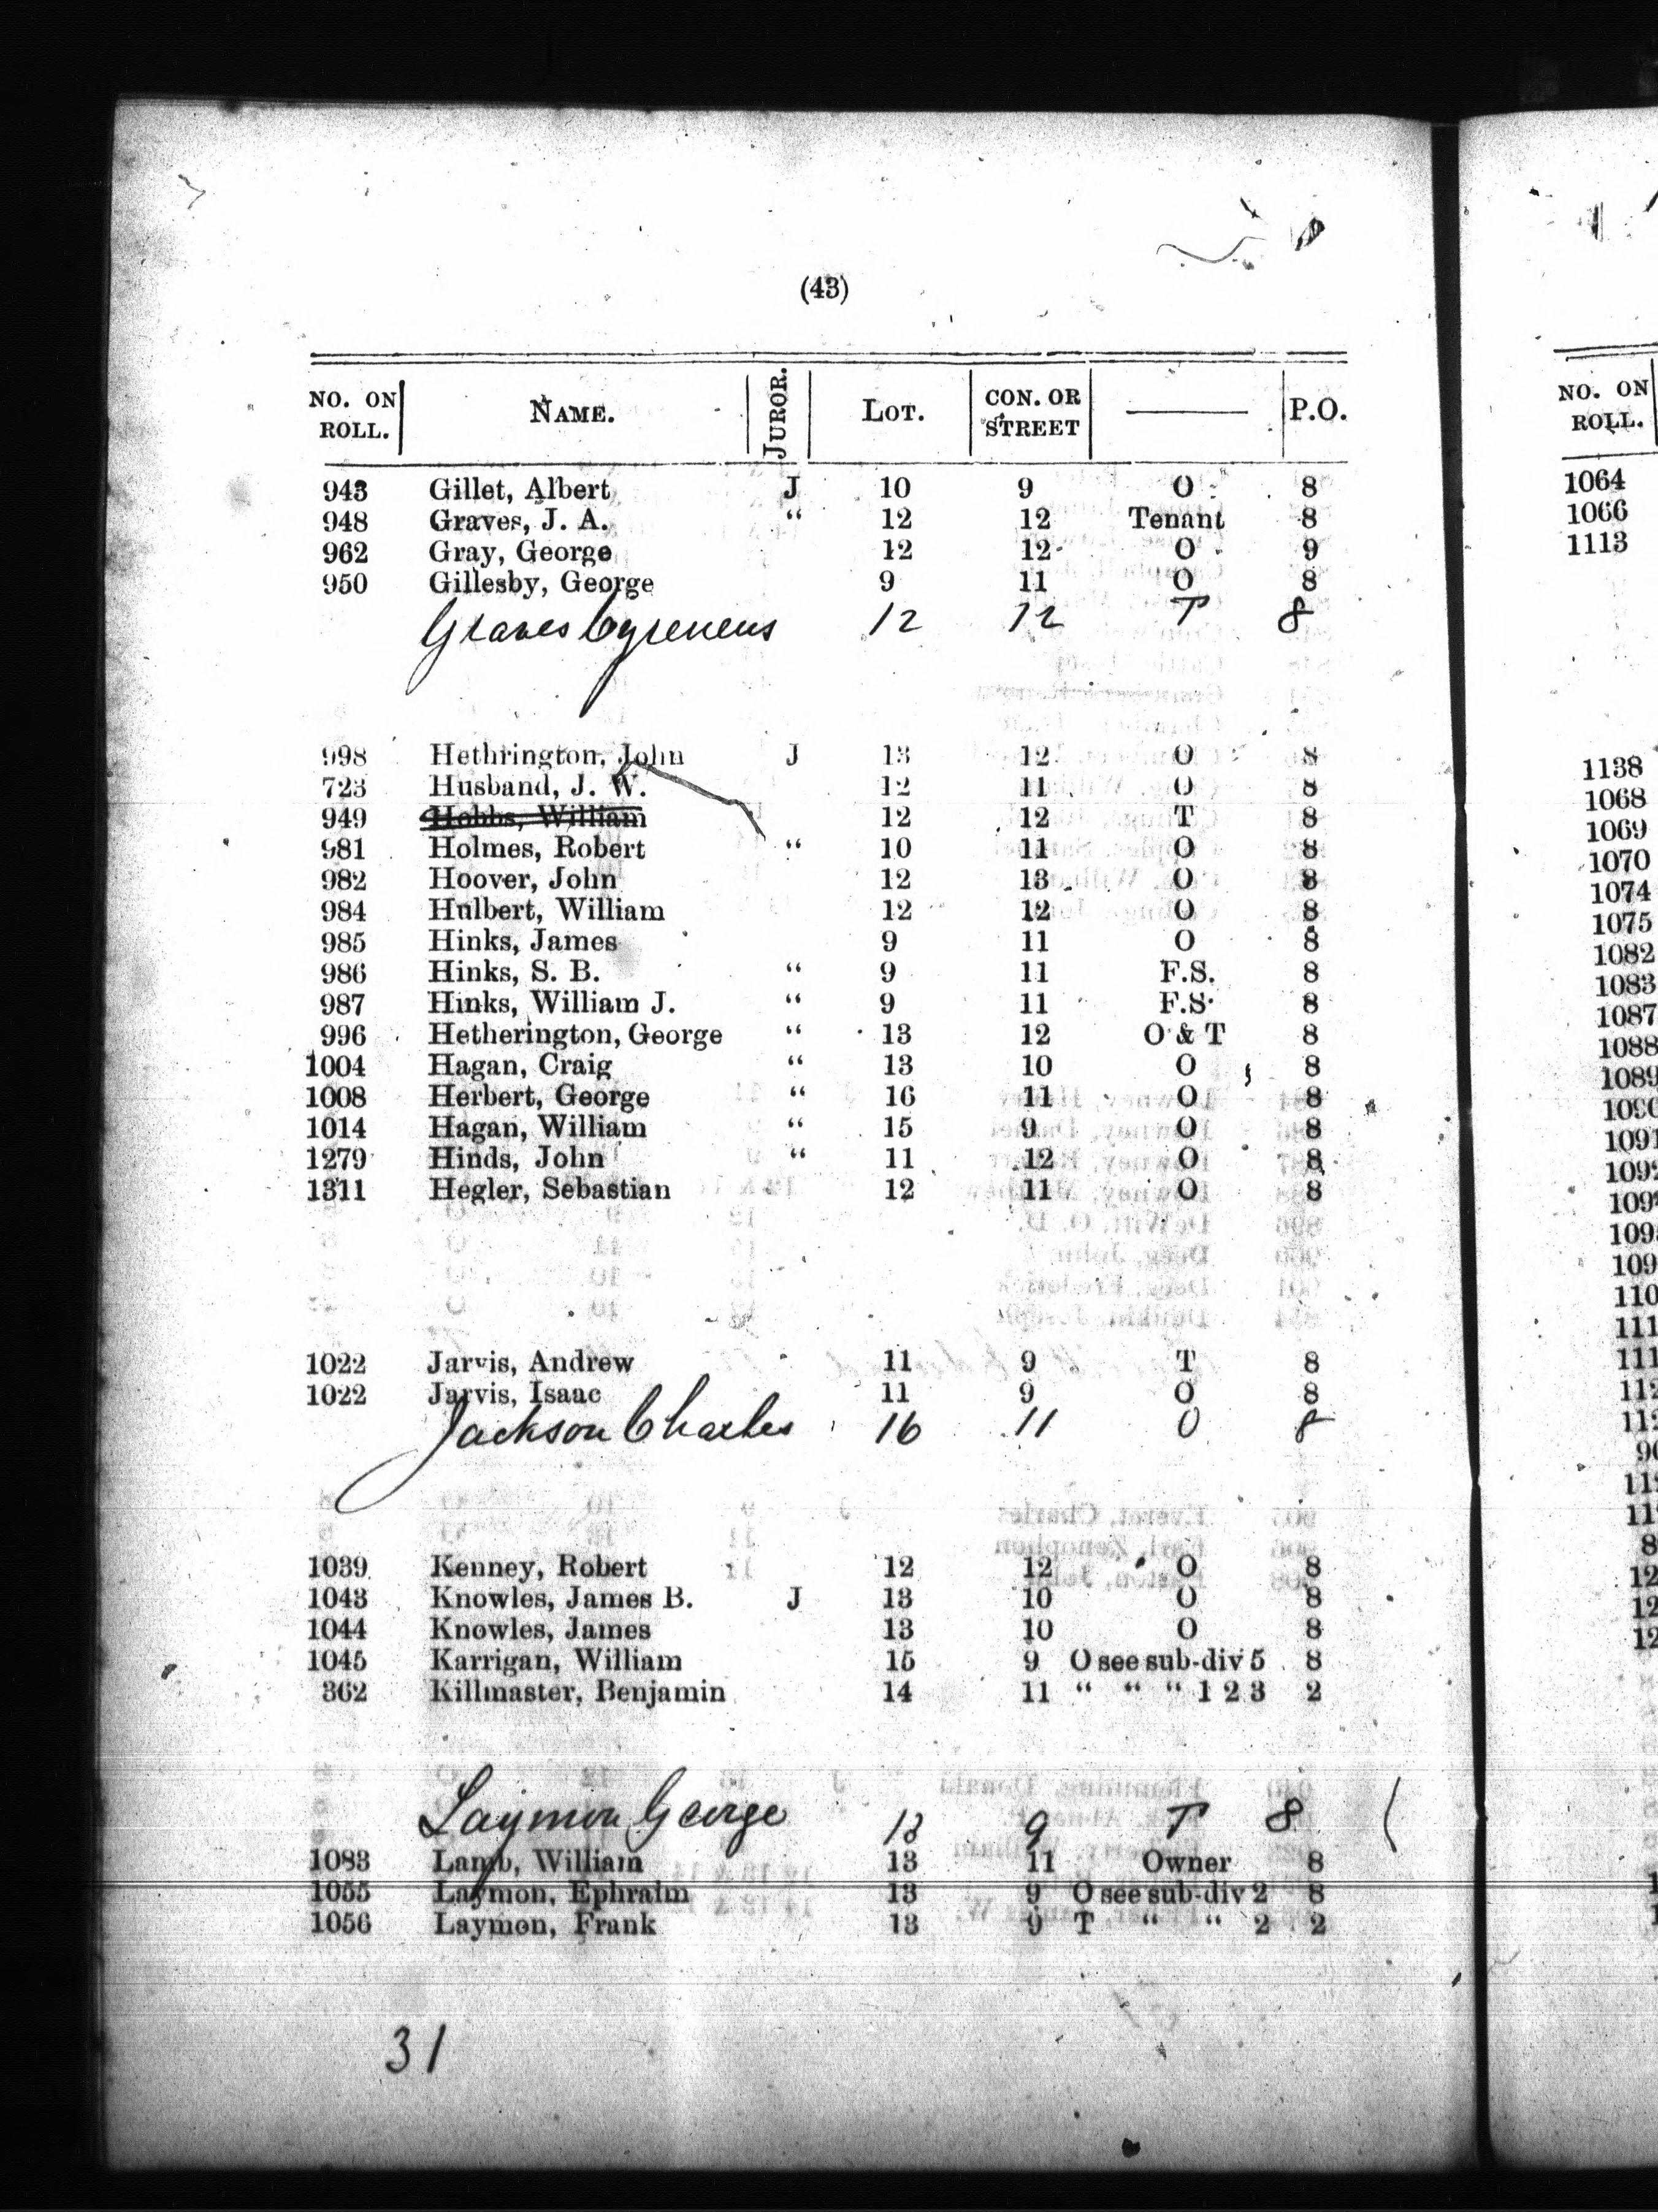 (43)
NO. ON ROLL. NAME. JUROR. LOT. CON. OR STREET ——— P.O.
943 Gillet, Albert J 10 9 O 8
948 Graves, J. A. “ 12 12 Tenant 8
962 Gray, George 12 12 O 9
950 Gillesby, George 9 11 O 8
Graves Cyreneus 12 12 T 8
998 Hethrington, John J 13 12 O 8
723 Husband, J. W. 12 11 O 8
949 Hobbs, William 12 12 T 8
981 Holmes, Robert “ 10 11 O 8
982 Hoover, John 12 13 O 8
984 Hulbert, William 12 12 O 8
985 Hinks, James 9 11 O 8
986 Hinks, S. B. “ 9 11 F.S. 8
987 Hinks, William J. “ 9 11 F.S. 8
996 Hetherington, George “ 13 12 O & T 8
1004 Hagan, Craig “ 13 10 O 8
1008 Herbert, George “ 16 11 O 8
1014 Hagan, William “ 15 9 O 8
1279 Hinds, John “ 11 12 O 8
1311 Hegler, Sebastian 12 11 O 8
1022 Jarvis, Andrew 11 9 T 8
1022 Jarvis, Isaac 11 9 O 8
Jackson Charles 16 11 O 8
1039 Kenney, Robert 12 12 O 8
1043 Knowles, James B. J 13 10 O 8
1044 Knowles, James 13 10 O 8
1045 Karrigan, William 15 9 O see sub-div 5 8
362 Killmaster, Benjamin 14 11 “ “ “ 1 2 3 2
Laymon George 13 9 T 8
1083 Lamb, William 13 11 Owner 8
1055 Laymon, Ephraim 13 9 O see sub-div 2 8
1056 Laymon, Frank 13 9 T “ “ 2 2
31
NO. ON ROLL.
1064
1066
1113
1138
1068
1069
1070
1074
1075
1082
1083
1087
1088
1089